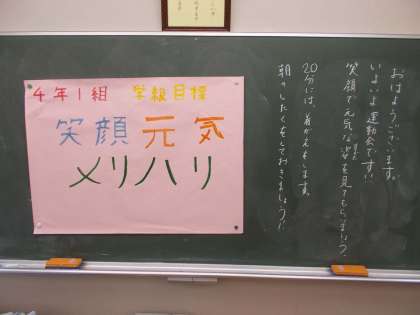 4年1組 学級目標
笑顔 元気
メリハリ
おはようございます。
いよいよ運動会です!!
笑顔で元気な姿を見てもらいましょう
20分には、着がえをします。
朝のしたくをしておきましょう!!